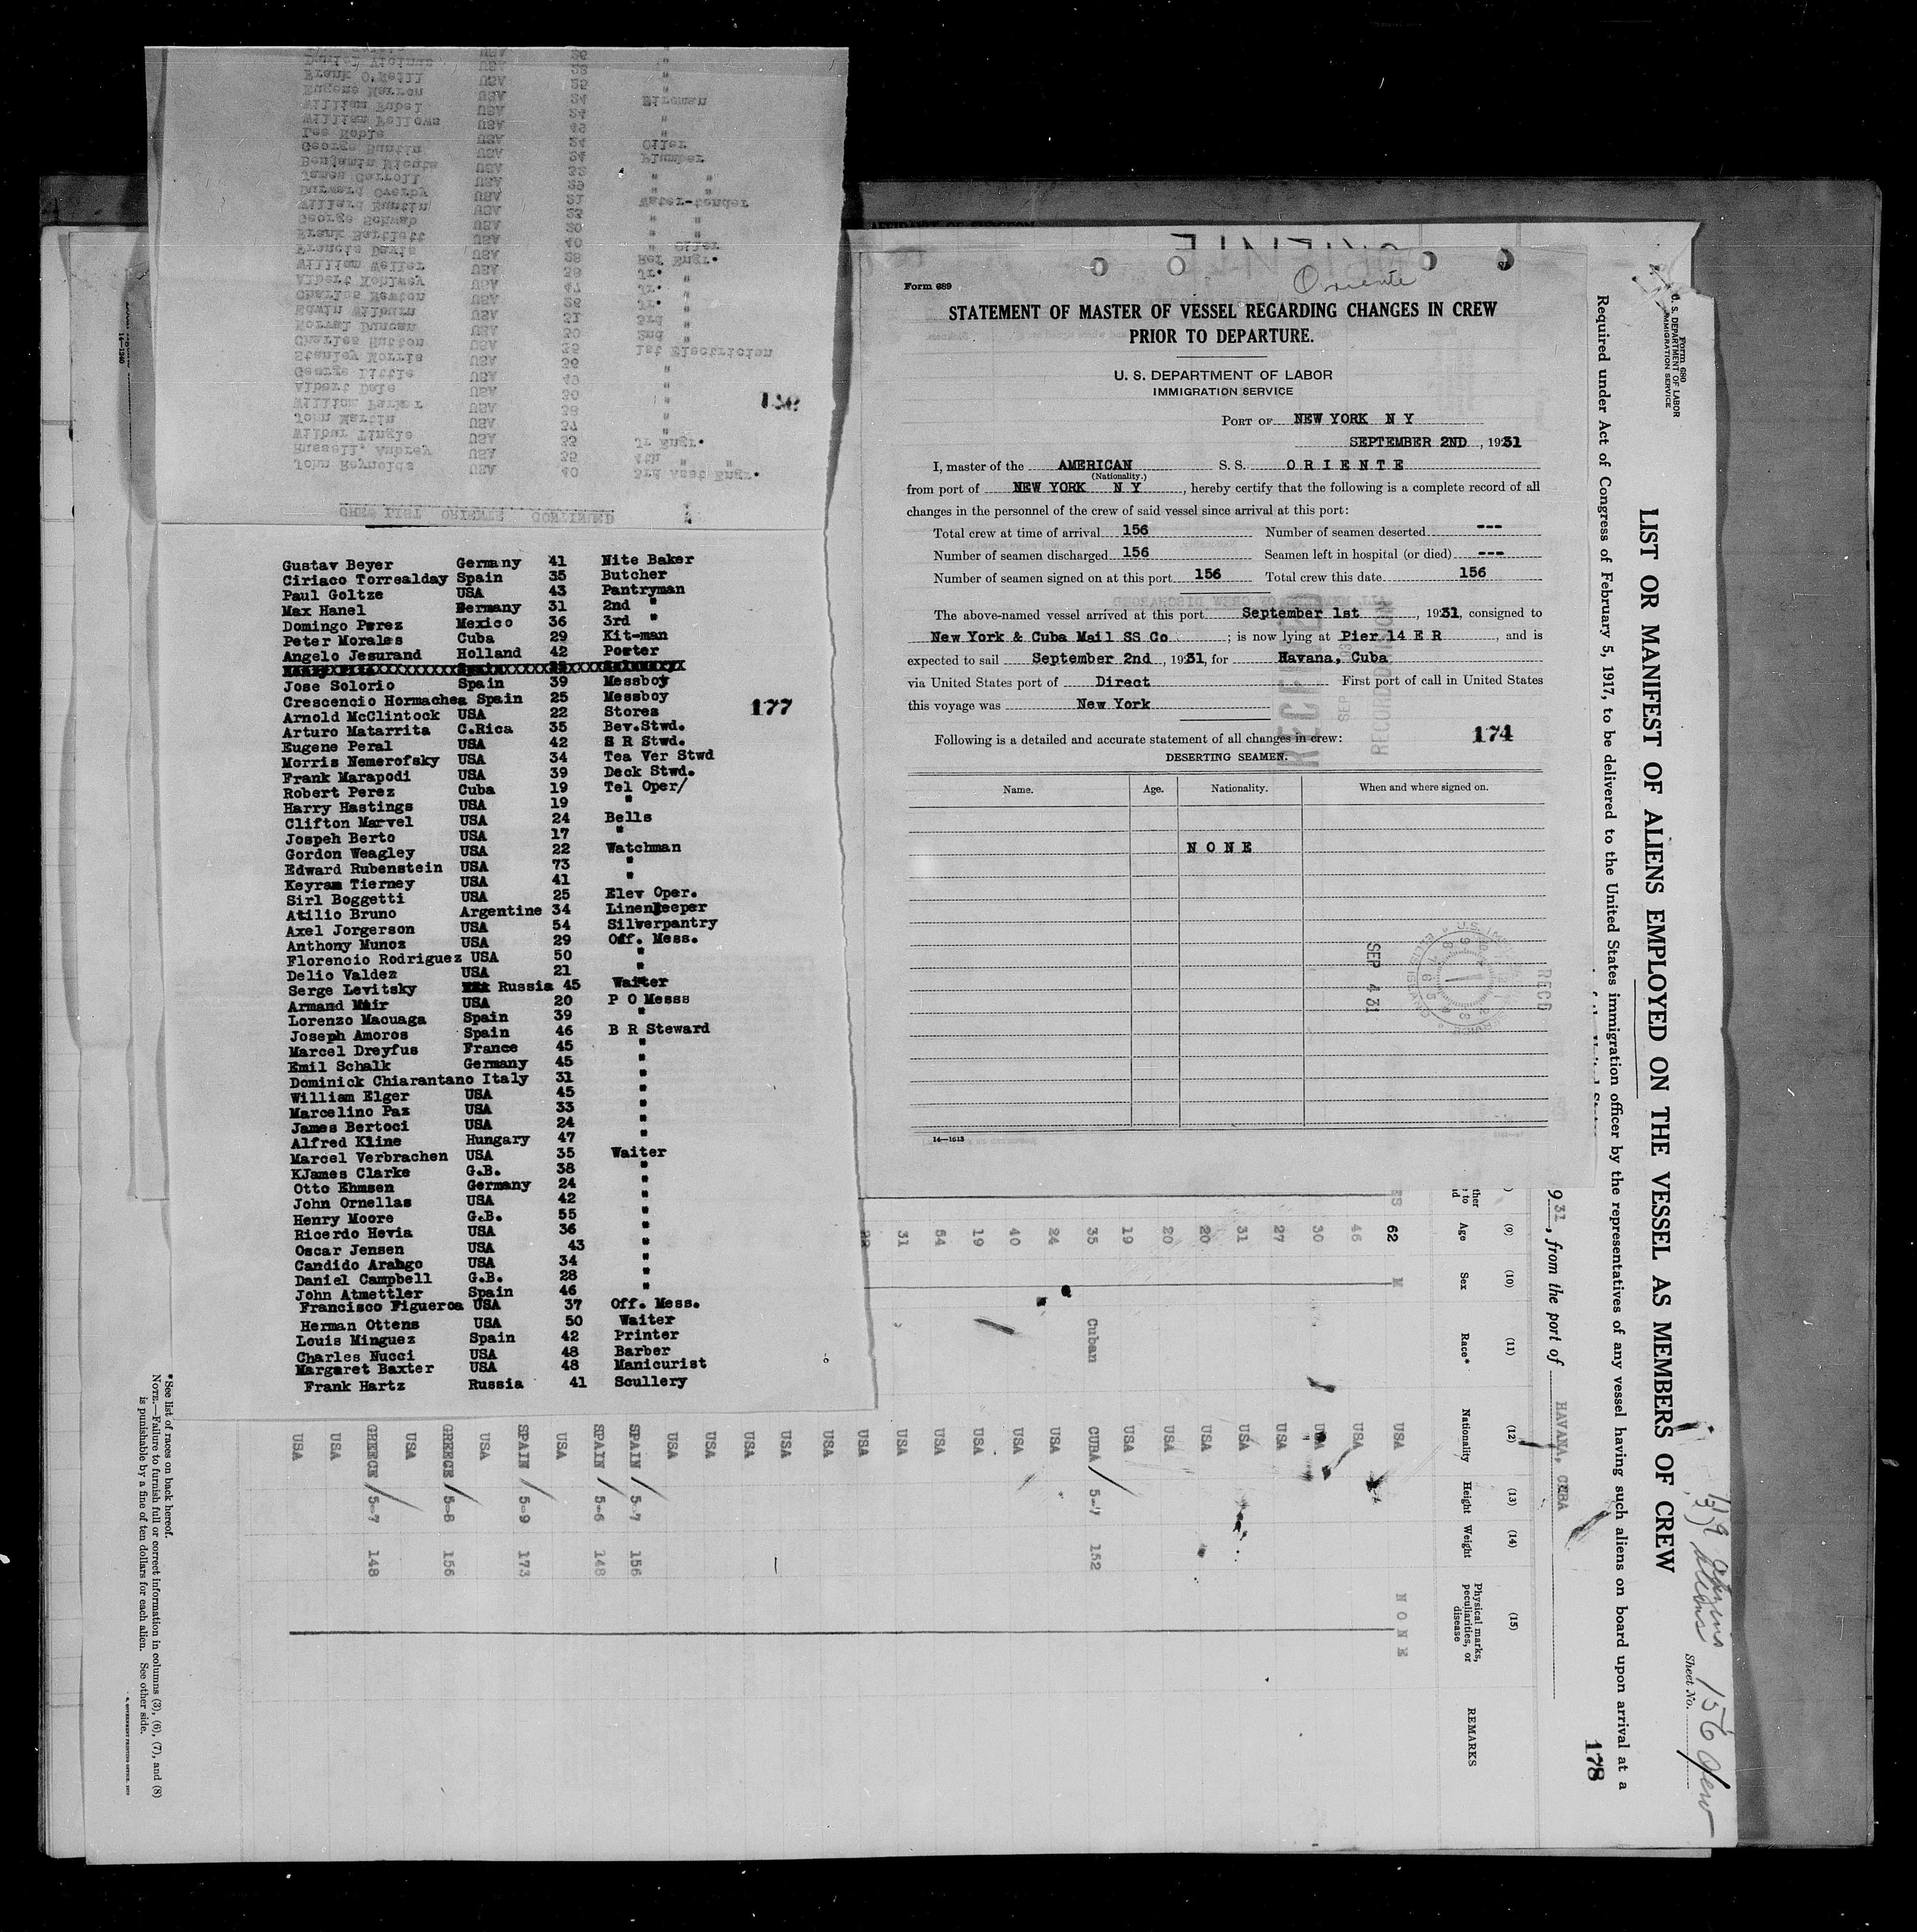 Form 689
Oriente
STATEMENT OF MASTER OF VESSEL REGARDING CHANGES IN CREW
PRIOR TO DEPARTURE.
U. S. DEPARTMENT OF LABOR
IMMIGRATION SERVICE
PORT OF NEW YORK N Y
SEPTEMBER 2ND, 1931
I, master of the AMERICAN S. S. ORIENTE
(Nationality.)
from port of NEW YORK N Y, hereby certify that the following is a complete record of all
changes in the personnel of the crew of said vessel since arrival at this port:
Total crew at time of arrival 156 Number of seamen deserted ---
Number of seamen discharged 156 Seamen left in hospital (or died) ---
Number of seamen signed on at this port 156 Total crew this date 156
The above-named vessel arrived at this port September 1st, 1931, consigned to
New York & Cuba Mail SS Co; is now lying at Pier 14 E R, and is
expected to sail September 2nd, 1931, for Havana, Cuba
via United States port of Direct First port of call in United States
this voyage was New York
174
Following is a detailed and accurate statement of all changes in crew:
DESERTING SEAMEN.
Name. Age. Nationality. When and where signed on.
NONE
SEP 4 31
RECD
14—1613
Gustav Beyer Germany 41 Nite Baker
Ciriaco Torrealday Spain 35 Butcher
Paul Goltze USA 43 Pantryman
Max Hanel Germany 31 2nd "
Domingo Perez Mexico 36 3rd "
Peter Morales Cuba 29 Kit-man
Angelo Jesurand Holland 42 Porter
Jose Solorio Spain 39 Messboy
Crescencio Hormachea Spain 25 Messboy
Arnold McClintock USA 22 Stores
177
Arturo Matarrita C.Rica 35 Bev.Stwd.
Eugene Peral USA 42 S R Stwd.
Morris Nemerofsky USA 34 Tea Ver Stwd
Frank Marapodi USA 39 Deck Stwd.
Robert Perez Cuba 19 Tel Oper/
Harry Hastings USA 19 "
Clifton Marvel USA 24 Bells
Jospeh Berto USA 17 "
Gordon Weagley USA 22 Watchman
Edward Rubenstein USA 73 "
Keyram Tierney USA 41 "
Sirl Boggetti USA 25 Elev Oper.
Atilio Bruno Argentine 34 Linenkeeper
Axel Jorgerson USA 54 Silverpantry
Anthony Munoz USA 29 Off. Mess.
Florencio Rodriguez USA 50 "
Delio Valdez USA 21 "
Serge Levitsky Russia 45 Waiter
Armand Mair USA 20 P O Messs
Lorenzo Macuaga Spain 39 "
Joseph Amoros Spain 46 B R Steward
Marcel Dreyfus France 45 "
Emil Schalk Germany 45 "
Dominick Chiarantano Italy 31 "
William Elger USA 45 "
Marcelino Paz USA 33 "
James Bertoci USA 24 "
Alfred Kline Hungary 47 "
Marcel Verbrachen USA 35 Waiter
KJames Clarke G.B. 38 "
Otto Ehmsen Germany 24 "
John Ornellas USA 42 "
Henry Moore G.B. 55 "
Ricardo Hevia USA 36 "
Oscar Jensen USA 43 "
Candido Arango USA 34 "
Daniel Campbell G.B. 28 "
John Atmettler Spain 46 "
Francisco Figueroa USA 37 Off. Mess.
Herman Ottens USA 50 Waiter
Louis Minguez Spain 42 Printer
Charles Nucci USA 48 Barber
Margaret Baxter USA 48 Manicurist
Frank Hartz Russia 41 Scullery
CREW LIST ORIENTE CONTINUED
John Reynolds USA 40 3rd Asst Engr.
Russell. Aubrey USA 35 4th " "
Wilbur Tingle USA 33 Jr Engr.
John Martin USA 37 "
William Parker USA 38 "
Albert Dale USA 30 "
George Little USA 49 "
Stanley Norris USA 36 "
Charles Hutton USA 35 1st Electrician
Norval Duncan USA 30 2nd "
Edwin Wilburn USA 31 3rd "
Charles Newton USA 26 Jr. "
Albert Kohlwey USA 47 Jr. "
William Weller USA 38 Jr. "
Francis Davis USA 28 Ref Engr.
Frank Bartlett USA 40 " Oiler
George Schwab USA 20 " "
Willard Buntin USA 23 " "
Durward Overby USA 21 Water-tender
James Carroll USA 29 " "
Benjamin Mienta USA 32 " "
George Buntin USA 24 Plumber
Lee Noble USA 24 Oiler
William Fellows USA 49 "
William Fubel USA 24 "
Eugene Marron USA 24 Fireman
Frank O'Neill USA 25 "
LIST OR MANIFEST OF ALIENS EMPLOYED ON THE VESSEL AS MEMBERS OF CREW
Form 680
U. S. DEPARTMENT OF LABOR
IMMIGRATION SERVICE
Required under Act of Congress of February 5, 1917, to be delivered to the United States immigration officer by the representatives of any vessel having such aliens on board upon arrival at a
31, from the port of HAVANA, CUBA
Sheet No.
156 Crew
178
(9) (10) (11) (12) (13) (14) (15)
Age Sex Race* Nationality Height Weight Physical marks, peculiarities, or disease REMARKS
62 M USA NONE
46 USA
30 USA
27 USA
31 USA
20 USA
20 USA
19 USA
35 Cuban CUBA 5-7 152
24 USA
40 USA
19 USA
54 USA
31 USA
USA
USA
USA
USA
USA
USA
SPAIN 5-7 156
SPAIN 5-6 148
USA
SPAIN 5-9 173
USA
GREECE 5-8 156
USA
GREECE 5-7 148
USA
USA
*See list of races on back hereof.
NOTE.—Failure to furnish full or correct information in columns (3), (6), (7), and (8)
is punishable by a fine of ten dollars for each alien. See other side.
14—1240